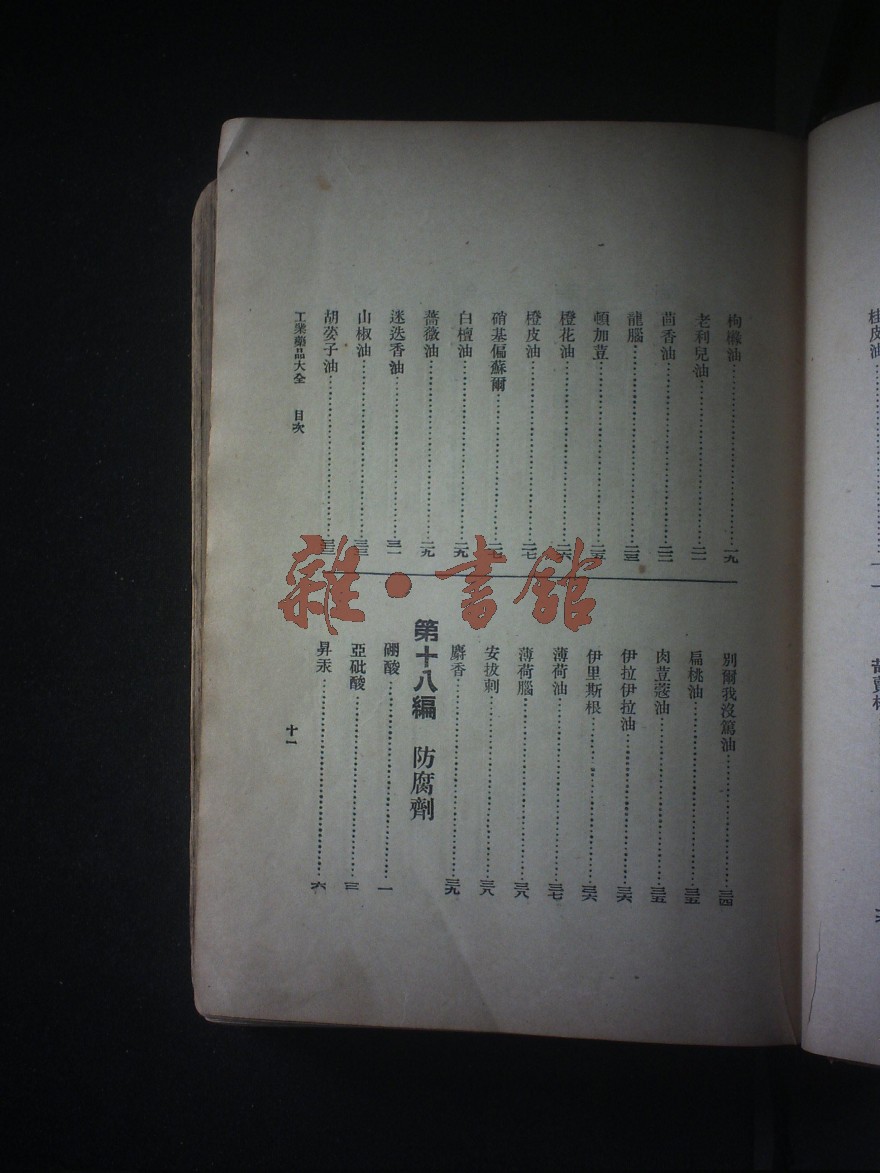 枸櫞油……一九
老利兒油……二一
茴香油……二二
龍腦……二三
頓加荳……二五
橙花油……二六
橙皮油……二七
硝基偏蘇爾……二七
白檀油……二九
薔薇油……二九
迷迭香油……三一
山椒油……三三
胡荽子油……三三
別爾我沒篤油……三四
扁桃油……三五
肉荳蔻油……三五
伊拉伊拉油……三六
伊里斯根……三六
薄荷油……三七
薄荷腦……三八
安拔刺……三八
麝香……三九
第十八編　防腐劑
硼酸……一
亞砒酸……三
昇汞……六
工業藥品大全　目次
十一
桂皮油
雜·書館